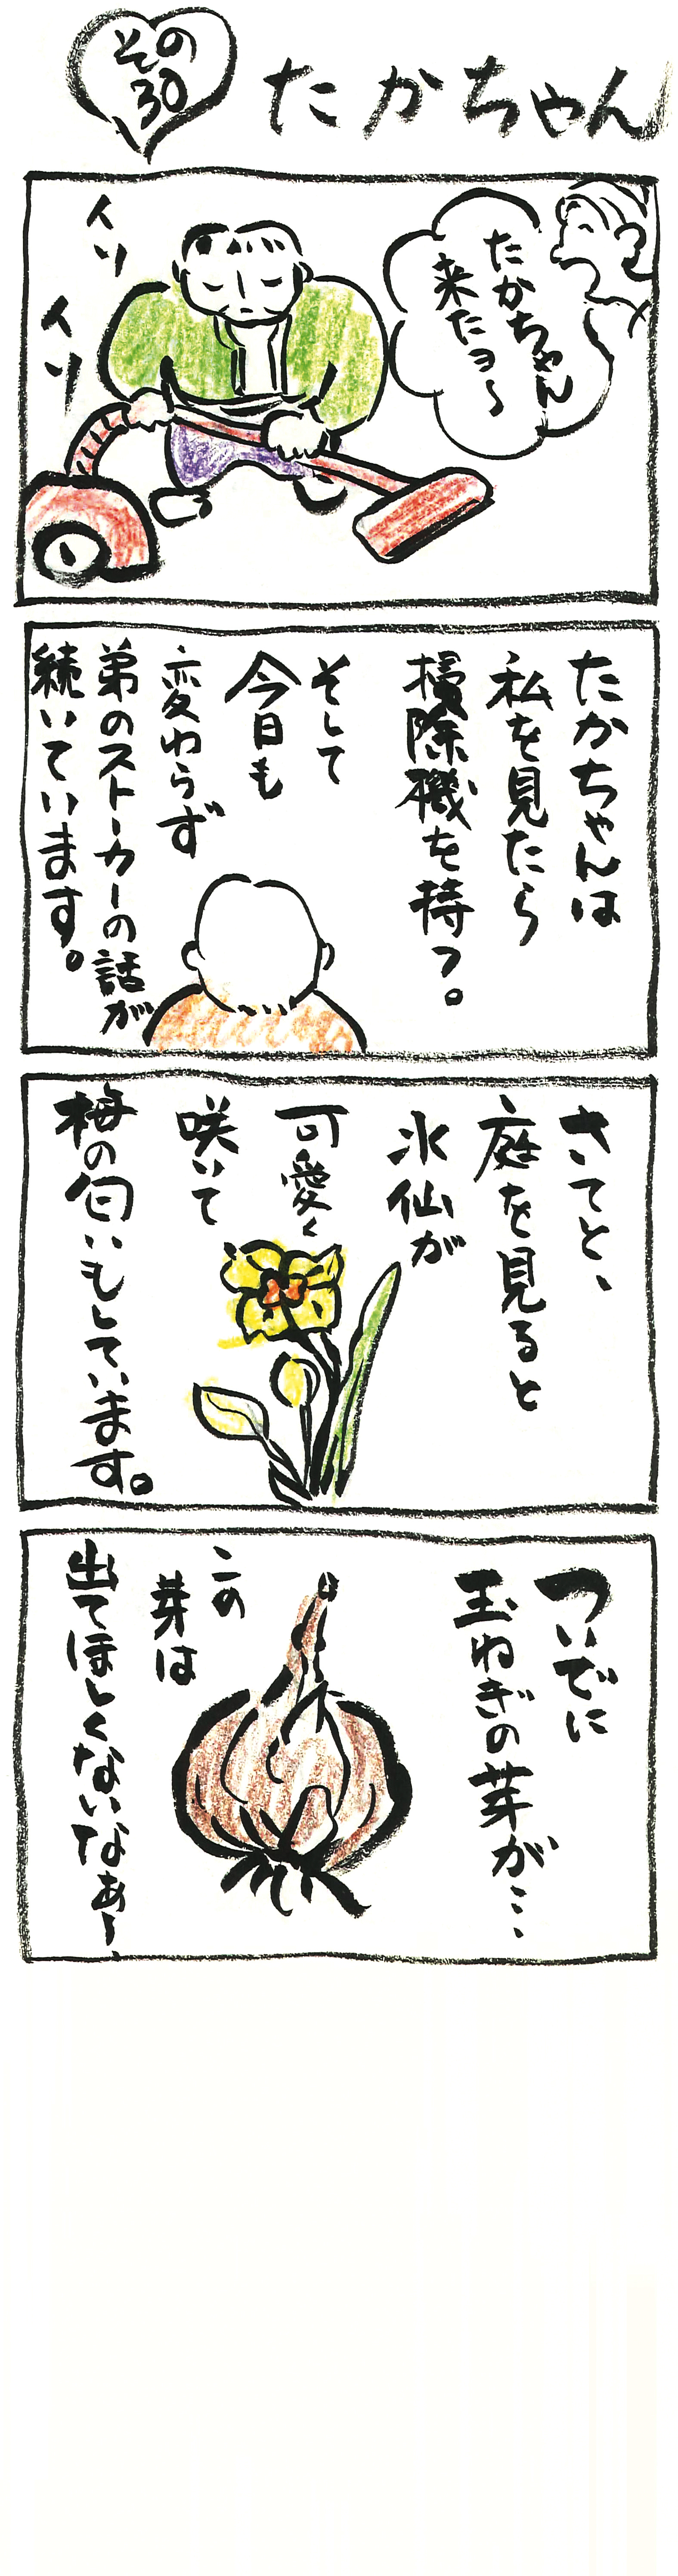 その
30
たかちゃん
たかちゃん
来たヨ〜
イソ
イソ
たかちゃんは
私を見たら
掃除機を持つ。
そして
今日も
変わらず
弟のストーカーの話が
続いています。
さてと、
庭を見ると
水仙が
可愛く
咲いて
梅の匂いもしています。
ついでに
玉ねぎの芽が…
この
芽は
出てほしくないなぁ〜、